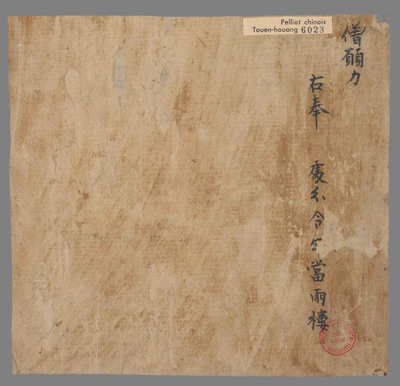 Pelliot chinois
Touen-houang 6023
僧願力
右奉 處分令 當雨樓